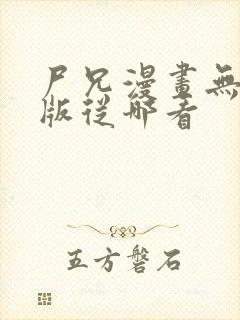 尸兄漫畫無
版從哪看
五方磐石